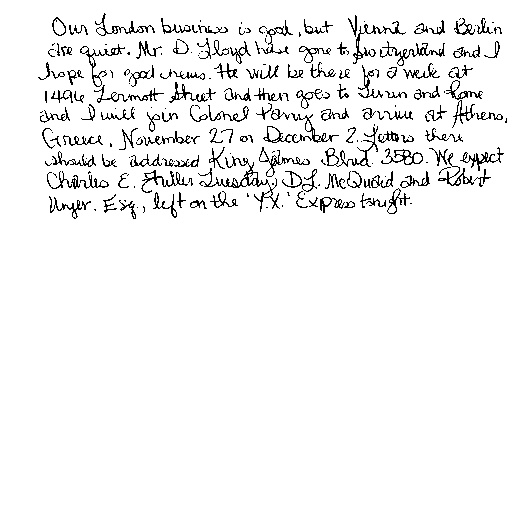 Our London business is good, but Vienna and Berlin
are quiet. Mr. D. Lloyd have gone to Switzerland and I
hope for good news. He will be there for a week at
1496 Zermott Street and then goes to Turin and Rome
and I will join Colonel Parry and arrive at Athens,
Greece, November 27 or December 2. Letters there
should be addressed King James Blvd. 3580. We expect
Charles E. Fuller Tuesday, D.L. McQuaid and Robert
Unger. Esq., left on the 'Y.X.' Express tonight.